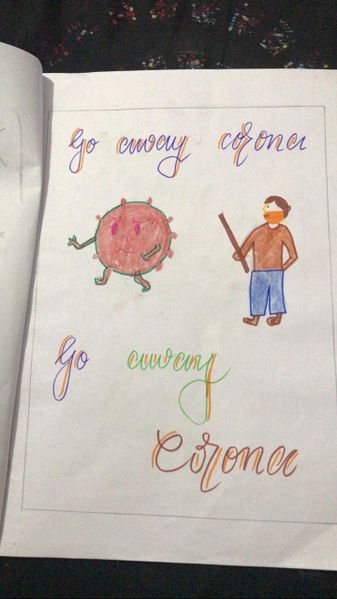 Go away corona
Go away
Corona